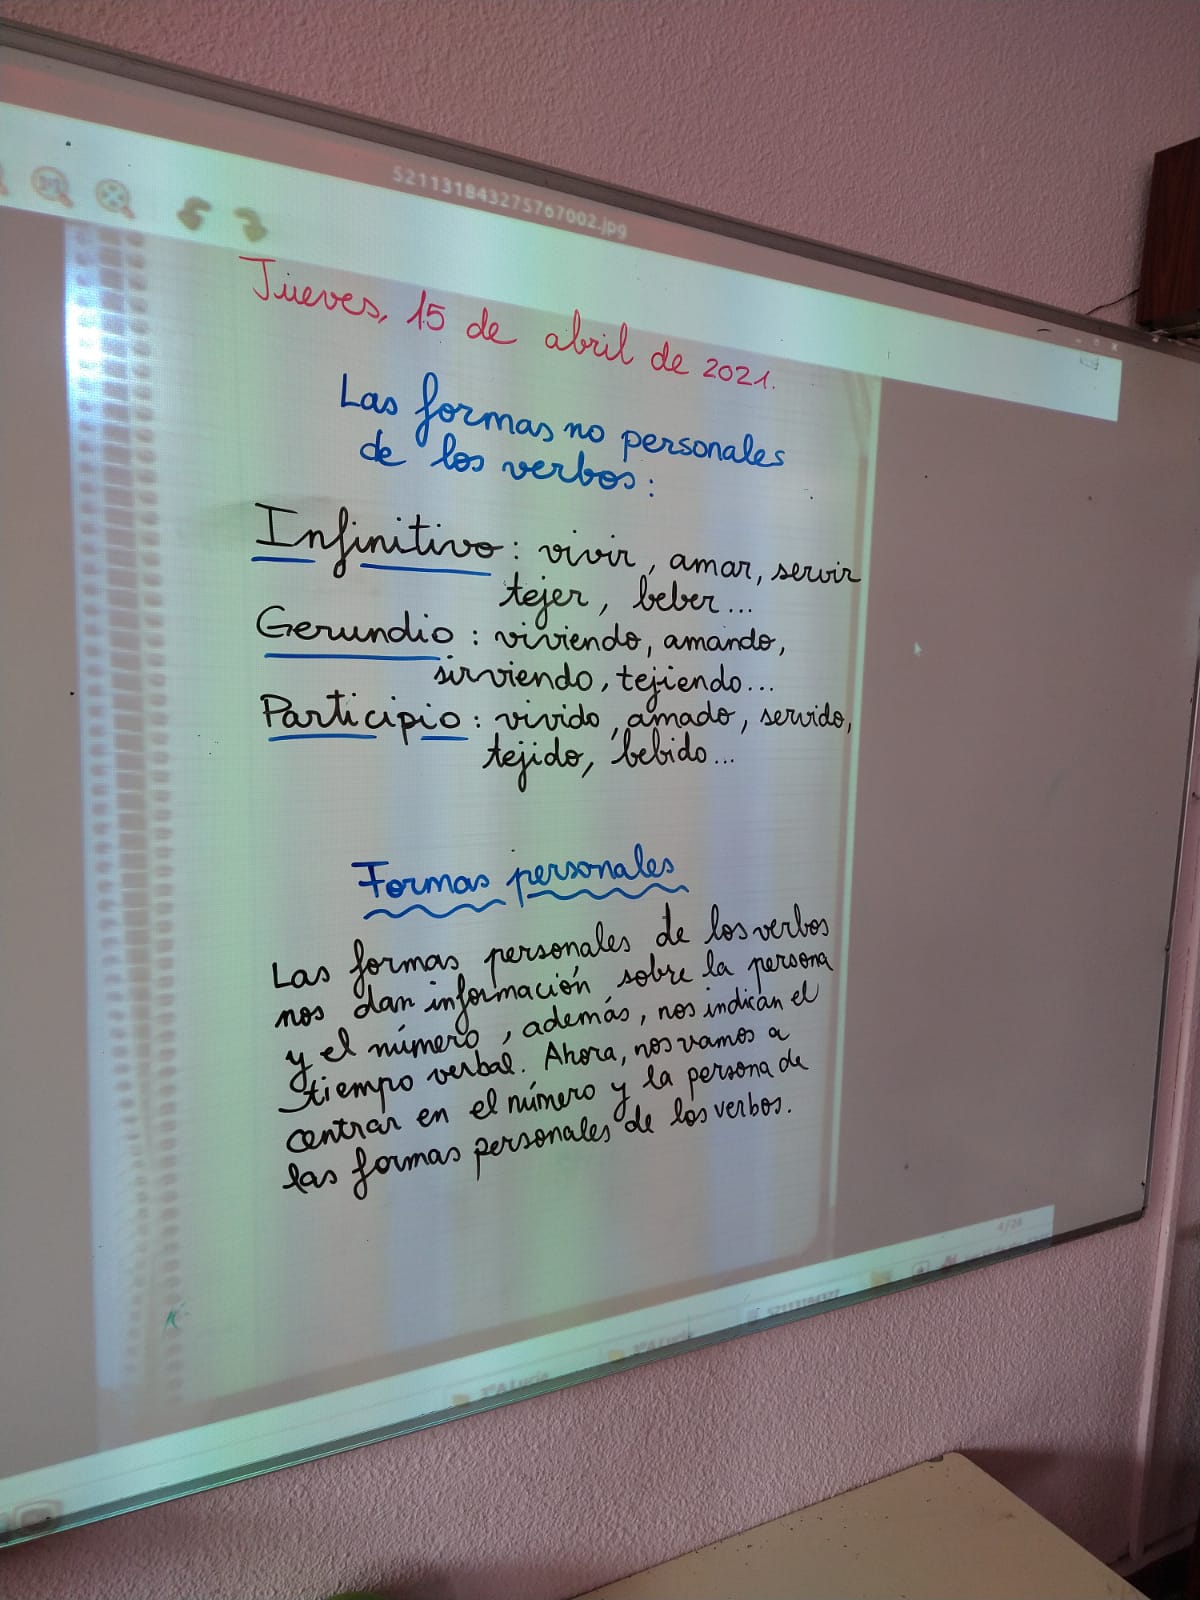 521131843275767002.jpg
Jueves, 15 de abril de 2021.
Las formas no personales
de los verbos:
Infinitivo: vivir, amar, servir
tejer, beber...
Gerundio: viviendo, amando,
sirviendo, tejiendo...
Participio: vivido, amado, servido,
tejido, bebido...
Formas personales
Las formas personales de los verbos
nos dan información sobre la persona
y el número, además, nos indican el
tiempo verbal. Ahora, nos vamos a
centrar en el número y la persona de
las formas personales de los verbos.
4/24
3ºA Lucía